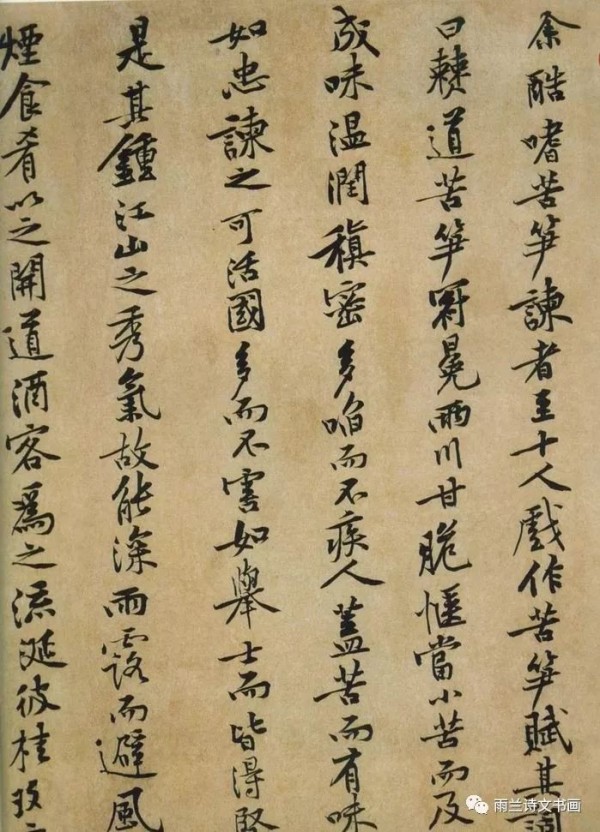 余酷嗜苦笋諫者至十人戲作苦笋賦其詞
曰僰道苦笋冠冕兩川甘脆愜當小苦而及
成味温潤稹密多啗而不疾人蓋苦而有味
如忠諫之可活國多而不害如舉士而皆得賢
是其鍾江山之秀氣故能深雨露而避風
煙食肴以之開道酒客爲之流涎彼桂玫
雨兰诗文书画